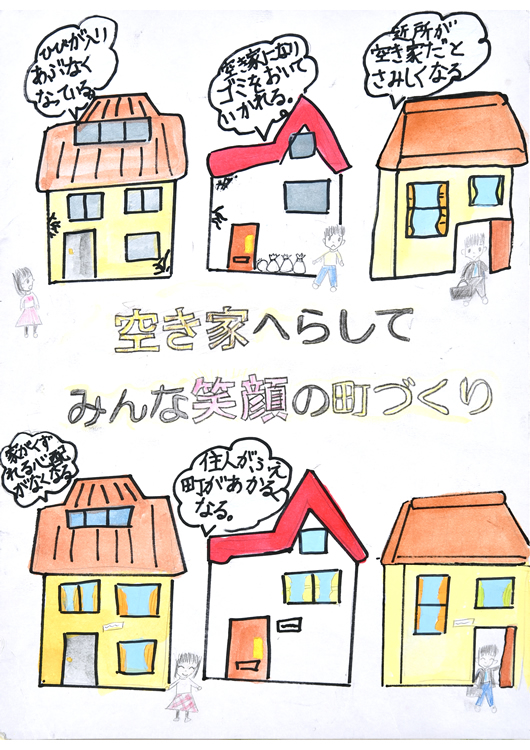 ひびが入り
あぶなく
なっている
空き家になり
ゴミをおいて
いかれる。
近所が
空き家だと
さみしくなる
空き家へらして
みんな笑顔の町づくり
家がくず
れる心配
がなくなる
住人がふえ
町があかるく
なる。